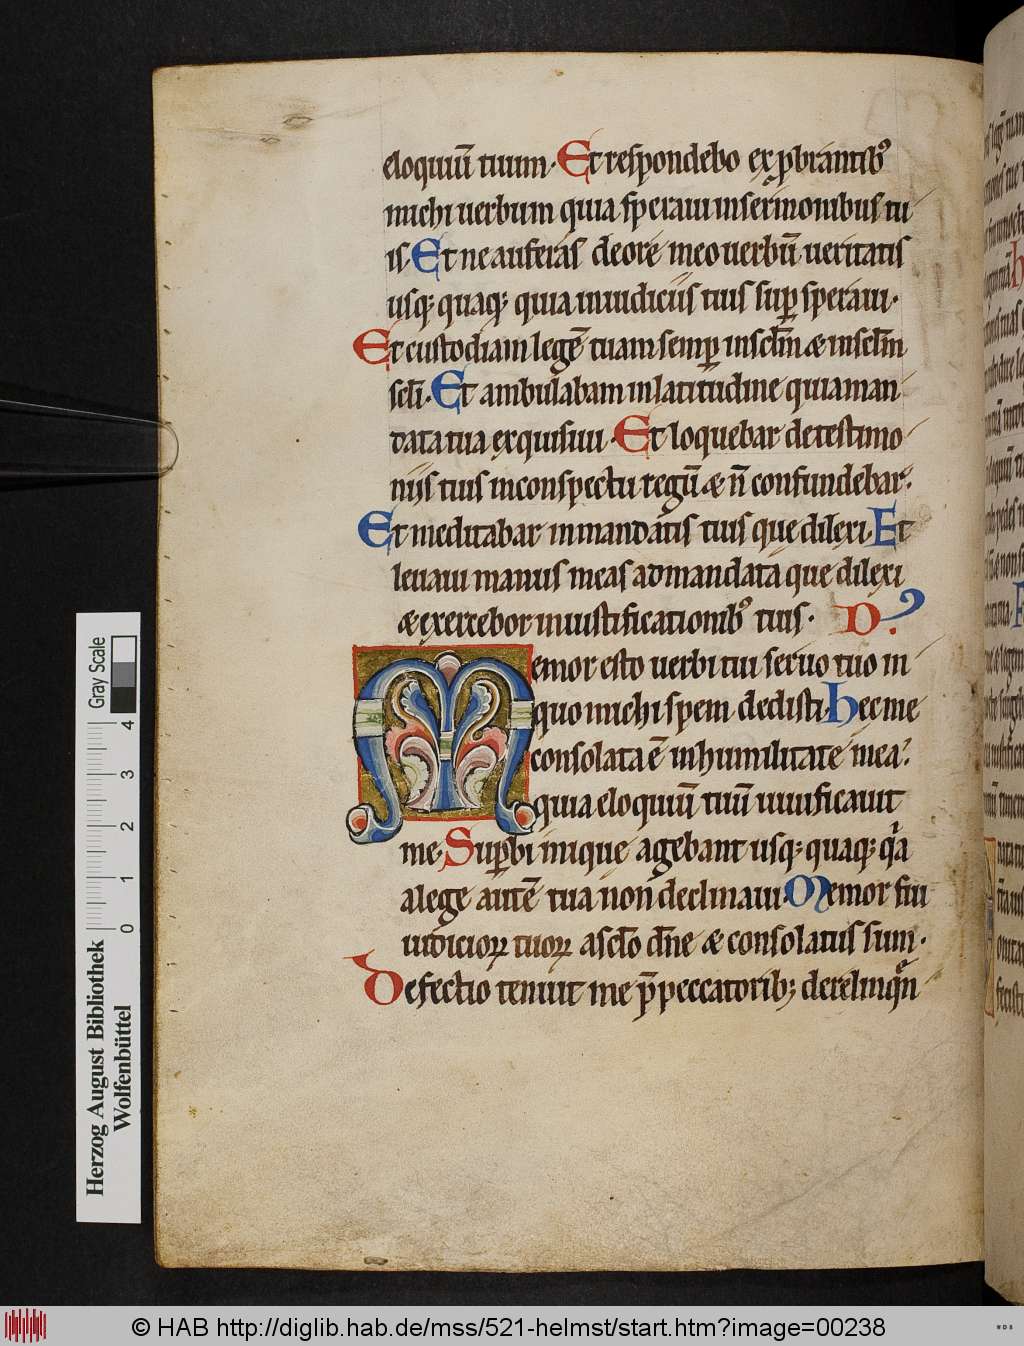 eloquiū tuum. Et respondebo exprobrantibꝰ
michi uerbum quia speraui in sermonibus tu
is. Et ne auferas de ore meo uerbū ueritatis
usqꝫ quaqꝫ quia in iudiciis tuis suꝑ speraui.
Et custodiam legē tuam semꝑ in sc̄lm̄ & in sc̄lm̄
sc̄li. Et ambulabam in latitudine quia man
data tua exquisiui. Et loquebar de testimo
niis tuis in conspectu regū & n̄ confundebar.
Et meditabar in mandatis tuis que dilexi. Et
leuaui manus meas ad mandata que dilexi
& exercebor in iustificationibꝰ tuis.
Memor esto uerbi tui seruo tuo in
quo michi spem dedisti. Hec me
consolata ē in humilitate mea.
quia eloquiū tuū uiuificauit
me. Suꝑbi inique agebant usqꝫ quaqꝫ
a lege autē tua non declinaui. Memor fui
iudicioꝝ tuoꝝ a sc̄lo dn̄e & consolatus sum.
Defectio tenuit me p̄ peccatoribꝫ derelinqͣn
Herzog August Bibliothek
Wolfenbüttel
Gray Scale
0 1 2 3 4
© HAB http://diglib.hab.de/mss/521-helmst/start.htm?image=00238